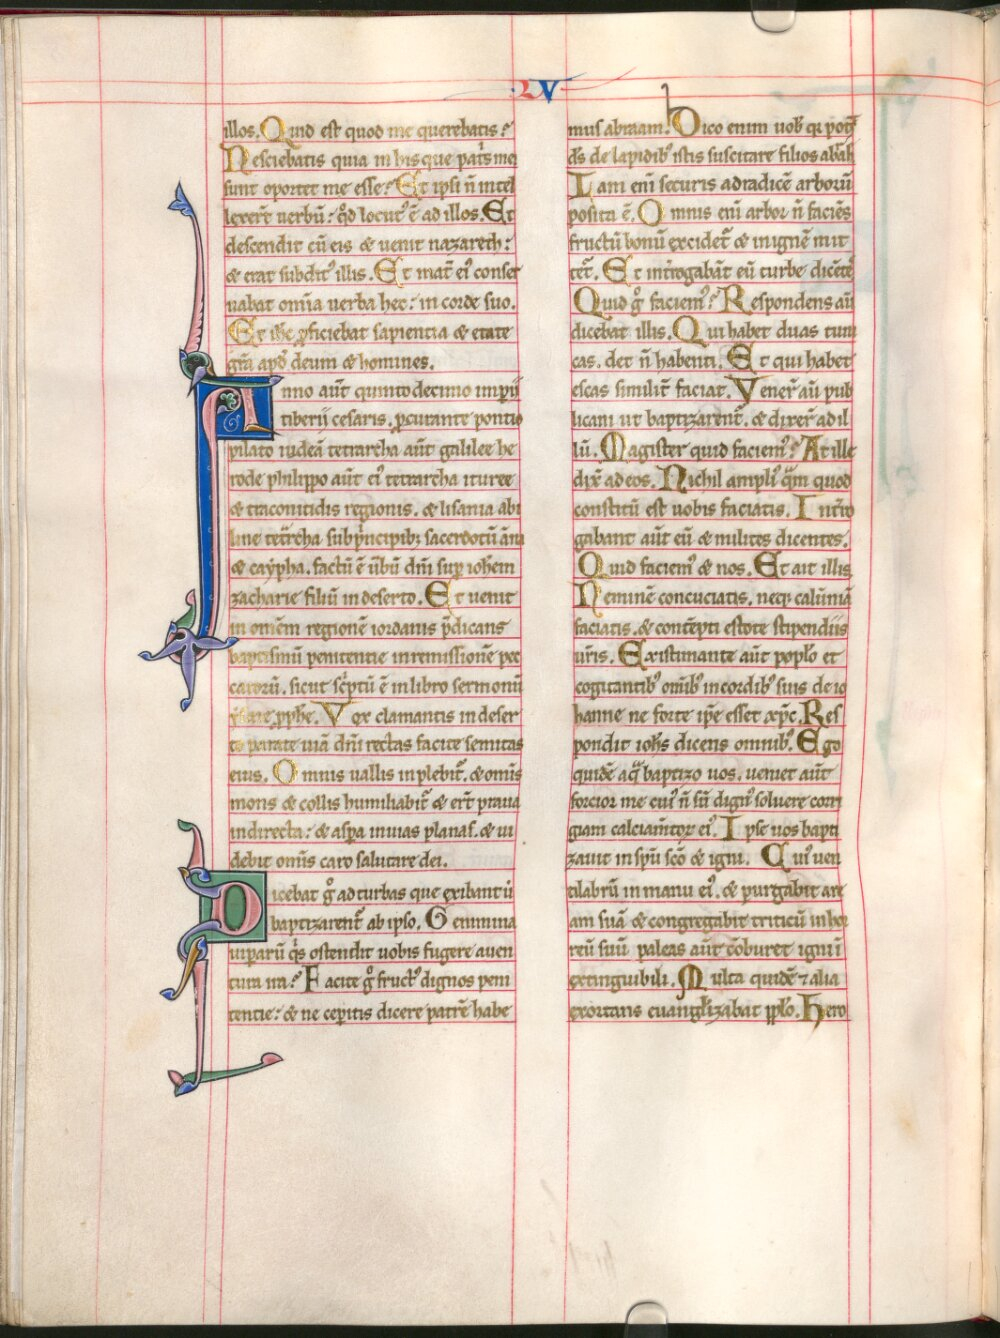 LV
illos. Quid est quod me querebatis?
Nesciebatis quia in his que pat̄s mei
sunt oportet me esse? Et ipsi n̄ intel
lexer̄t uerbū: qd̄ locut᾿ ē ad illos. Et
descendit cū eis & uenit nazareth:
& erat subdit᾿ illis. Et mat̄ ei᾿ conser
uabat om̄ia uerba hec: in corde suo.
Et ih̄c ꝓficiebat sapientia & etate
gr̄a apd̄ deum & homines.
Anno aūt quintodecimo imp̄ii
tiberij cesaris. ꝓcurante pontio
pilato iudeā tetrarcha aūt galilee he
rode philippo aūt ei᾿ tetrarcha ituree
& traconitidis regionis. & lisania abi
line tet̄rcha sub p̄ncipib; sacerdotū āna
& caypha. factū ē ūbū dn̄i sup ioh̄em
zacharie filiū in deserto. Et uenit
in omēm regionē iordanis p̄dicans
baptismū penitentie in remissionē pec
catorū. sicut sc̄ptū ē in libro sermonū
ẏsaie ꝓphe. Vox clamantis in deser
to parate uiā dn̄i rectas facite semitas
eius. Omnis uallis inplebit̄. & om̄is
mons & collis humiliabit̄ & er̄t praua
in directa: & aspa in uias planas. & ui
debit om̄is caro salutare dei.
Dicebat g᷒ ad turbas que exibant ū
baptizarent̄ ab ipso. Genimina
uiparū q̄s ostendit uobis fugere auen
tura ira? Facite g᷒ fruct᾿ dignos peni
tentie: & ne ceperitis dicere patrē habe
mus abraam. Dico enim uob᾿ qr pot̄
d̄s de lapidib᾿ istis suscitare filios ab̄ah
Iam eni securis ad radicē arborū
posita ē. Omnis eni arbor n̄ faciēs
fructū bonū excidet̄ & in ignē mit
tet̄. Et int̄rogabāt eū turbe dicētes
Quid g᷒ faciem᾿? Respondens aū
dicebat illis. Qui habet duas tuni
cas. det n̄ habenti. Et qui habet
escas similit̄ faciat. Vener̄ aū pub
licani ut baptizarent̄. & dixer̄ ad il
lū. Magister quid faciem᾿? At ille
dix̄ ad eos. Nichil ampli᾿ q̄m quod
constitū est uobis faciatis. Int̄ro
gabant aūt eū & milites dicentes.
Quid faciem᾿ & nos. Et ait illis
Neminē concuciatis. neq; calūniā
faciatis. & contēpti estote stipendiis
ur̄is. Existimante aūt poplo et
cogitantib᾿ om̄ib᾿ in cordib᾿ suis de io
hanne ne forte ip̄e esset xp̄c. Res
pondit ioh̄s dicens omnib᾿. Ego
quidē aq̄ baptizo uos. ueniet aūt
forcior me cui᾿ n̄ sū dign᾿ soluere corri
giam calciam̄tor ei᾿. Ipse uos bapti
zauit in sp̄u sc̄o & igni. Cui᾿ uen
tilabrū in manu ei᾿. & purgabit are
am suā & congregabit triticū in hor
reū suū paleas aūt cōburet igni ī
extinguibili. Multa quidē ⁊ alia
exortans euanglizabat pplo. Hero